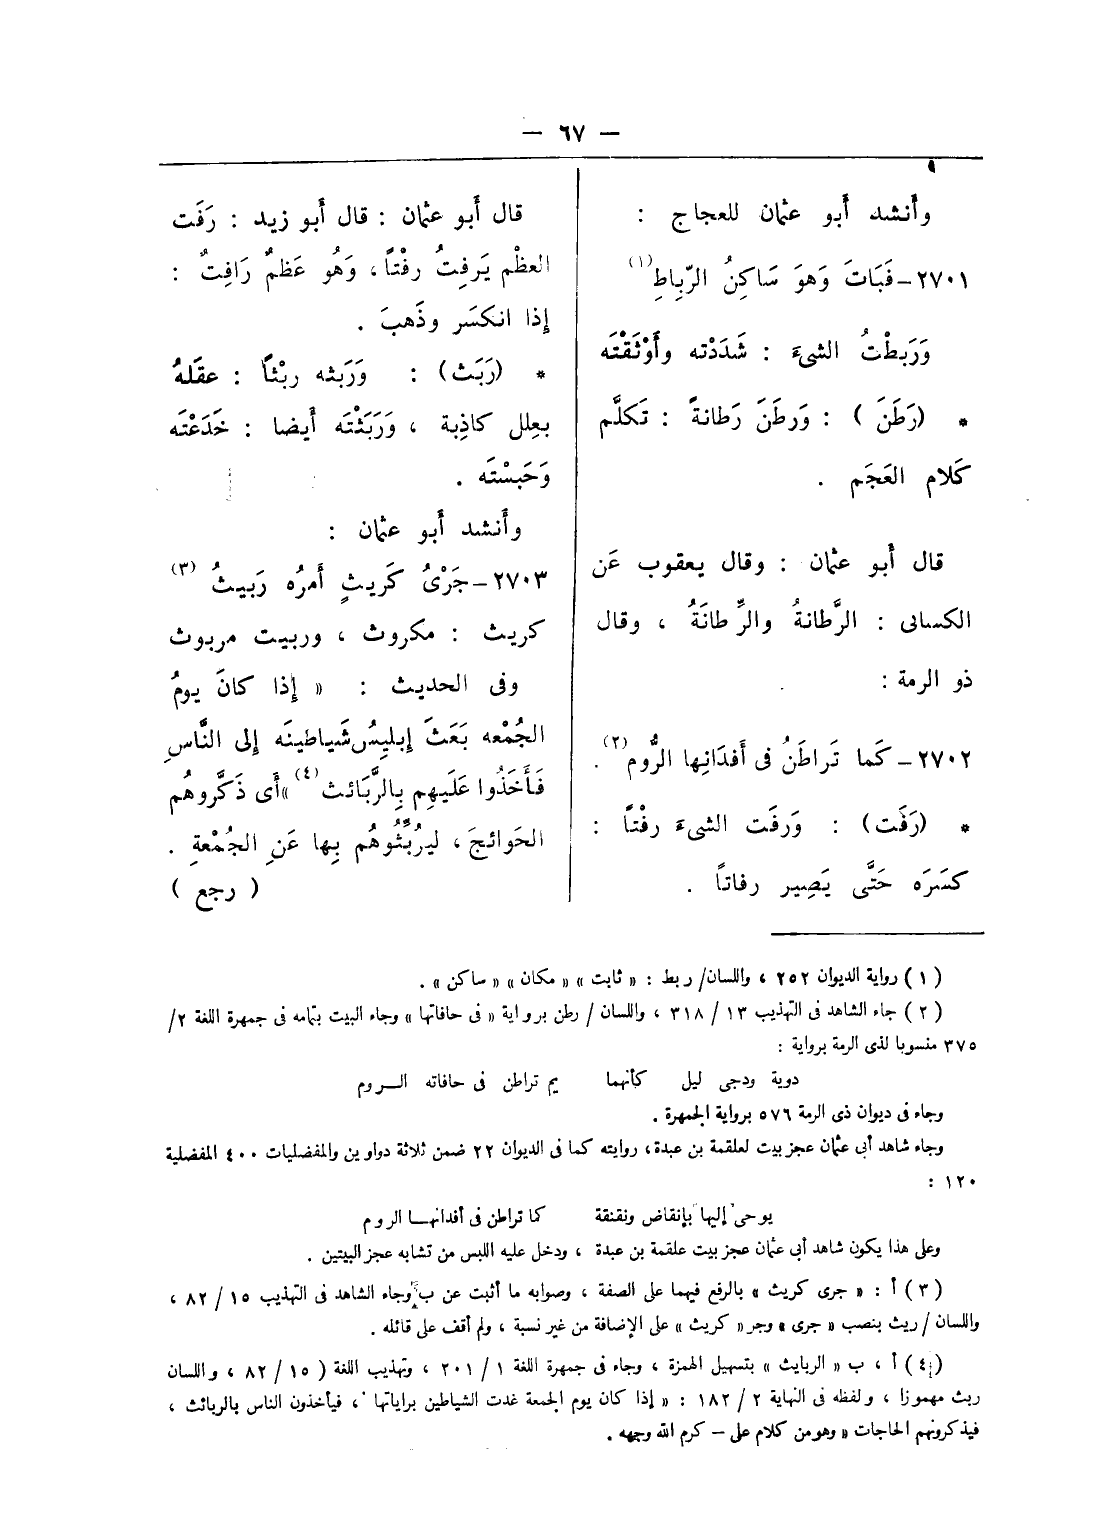 — ٦٧ —
وأنشد أَبو عثمان للعجاج :
٢٧٠١ – فَبَاتَ وَهوَ سَاكِنُ الرِّبِاطِ (١)
وَرَبطْتُ الشىءَ : شَدَدْته وأَوْثَقْتَه
* (رَطَنَ ) : وَرطَنَ رَطانةً : تَكلَّم
كَلام العَجَم .
قال أَبو عثمان : وقال يعقوب عَن
الكسائى : الرَّطانةُ والرِّطانَةُ ، وقال
ذو الرمة :
٢٧٠٢ – كَما تَراطَنُ فى أَفدَانِها الرُّوم (٢) .
* (رَفَت) : وَرفت الشىءَ رفْتاً :
كسَرَه حَتَّى يَصِير رفاتاً .
قال أَبو عثمان : قال أَبو زيد : رَفَت
العظْم يَرفِتُ رفْتاً ، وَهُو عَظمٌ رَافِتٌ :
إذا انكسَر وذَهبَ .
* (رَبَث) : وَرَبثه ربْثاً : عقَلهُ
بعِلل كاذِبة ، وَرَبَثْتَه أَيضا : خَدَعْتَه
وَحَبسْتَه .
وأَنشد أَبو عثمان :
٢٧٠٣ – جَرْىُ كَريثٍ أَمرُه رَبيثُ (٣)
كريث : مكروث ، وربيت مربوث
وفى الحديث : « إِذا كانَ يومُ
الجُمْعه بَعَثَ إِبلِيِسُ شَياطينَه إِلى النَّاسِ
فَأَخَذُوا عَلَيهِم بِالرَّبَائث (٤) » أَى ذَكَّروهُم
الحَوائجَ ، ليرُبِّثُوهُم بِها عَنِ الجُمْعةِ .
( رجع )
( ١ ) رواية الديوان ٢٥٢ ، واللسان/ ربط : « ثابت » « مكان » « ساكن » .
( ٢ ) جاء الشاهد فى التهذيب ١٣ / ٣١٨ ، واللسان / رطن برواية « فى حافاتها » وجاء البيت بتمامه فى جمهرة اللغة ٢/
٣٧٥ منسوبا لذى الرمة برواية :
دوية ودجى ليل كأنهما يم تراطن فى حافاته الروم
وجاء فى ديوان ذى الرمة ٥٧٦ برواية الجمهرة .
وجاء شاهد أبى عثمان عجز بيت لعلقمة بن عبدة ، روايته كما فى الديوان ٢٢ ضمن ثلاثة دواوين والمفضليات ٤٠٠ المفضلية
١٢٠ :
يوحى إليها بإنقاض ونقنقة كما تراطن فى أفدانهـا الروم
وعلى هذا يكون شاهد أبى عثمان عجز بيت علقمة بن عبدة ، ودخل عليه اللبس من تشابه عجز البيتين .
( ٣ ) أ : « جرى كريث » بالرفع فيهما على الصفة ، وصوابه ما أثبت عن ب وجاء الشاهد فى التهذيب ١٥ / ٨٢ ،
واللسان / ريث بنصب « جرى » وجر « كريث » على الإضافة من غير نسبة ، ولم أقف على قائله .
(٤) أ ، ب « الربايث » بتسهيل الهمزة ، وجاء فى جمهرة اللغة ١ / ٢٠١ ، وتهذيب اللغة ( ١٥ / ٨٢ ، واللسان
ربث مهموزا ، ولفظه فى النهاية ٢ / ١٨٢ : « إذا كان يوم الجمعة غدت الشياطين براياتها ، فيأخذون الناس بالربائث ،
فيذكرونهم الحاجات » وهو من كلام على – كرم الله وجهه .